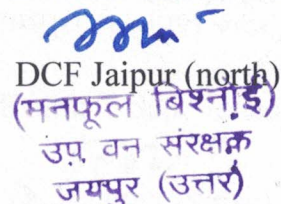 DCF Jaipur (north)
(मनफूल बिश्नोई)
उप वन संरक्षक
जयपुर (उत्तर)